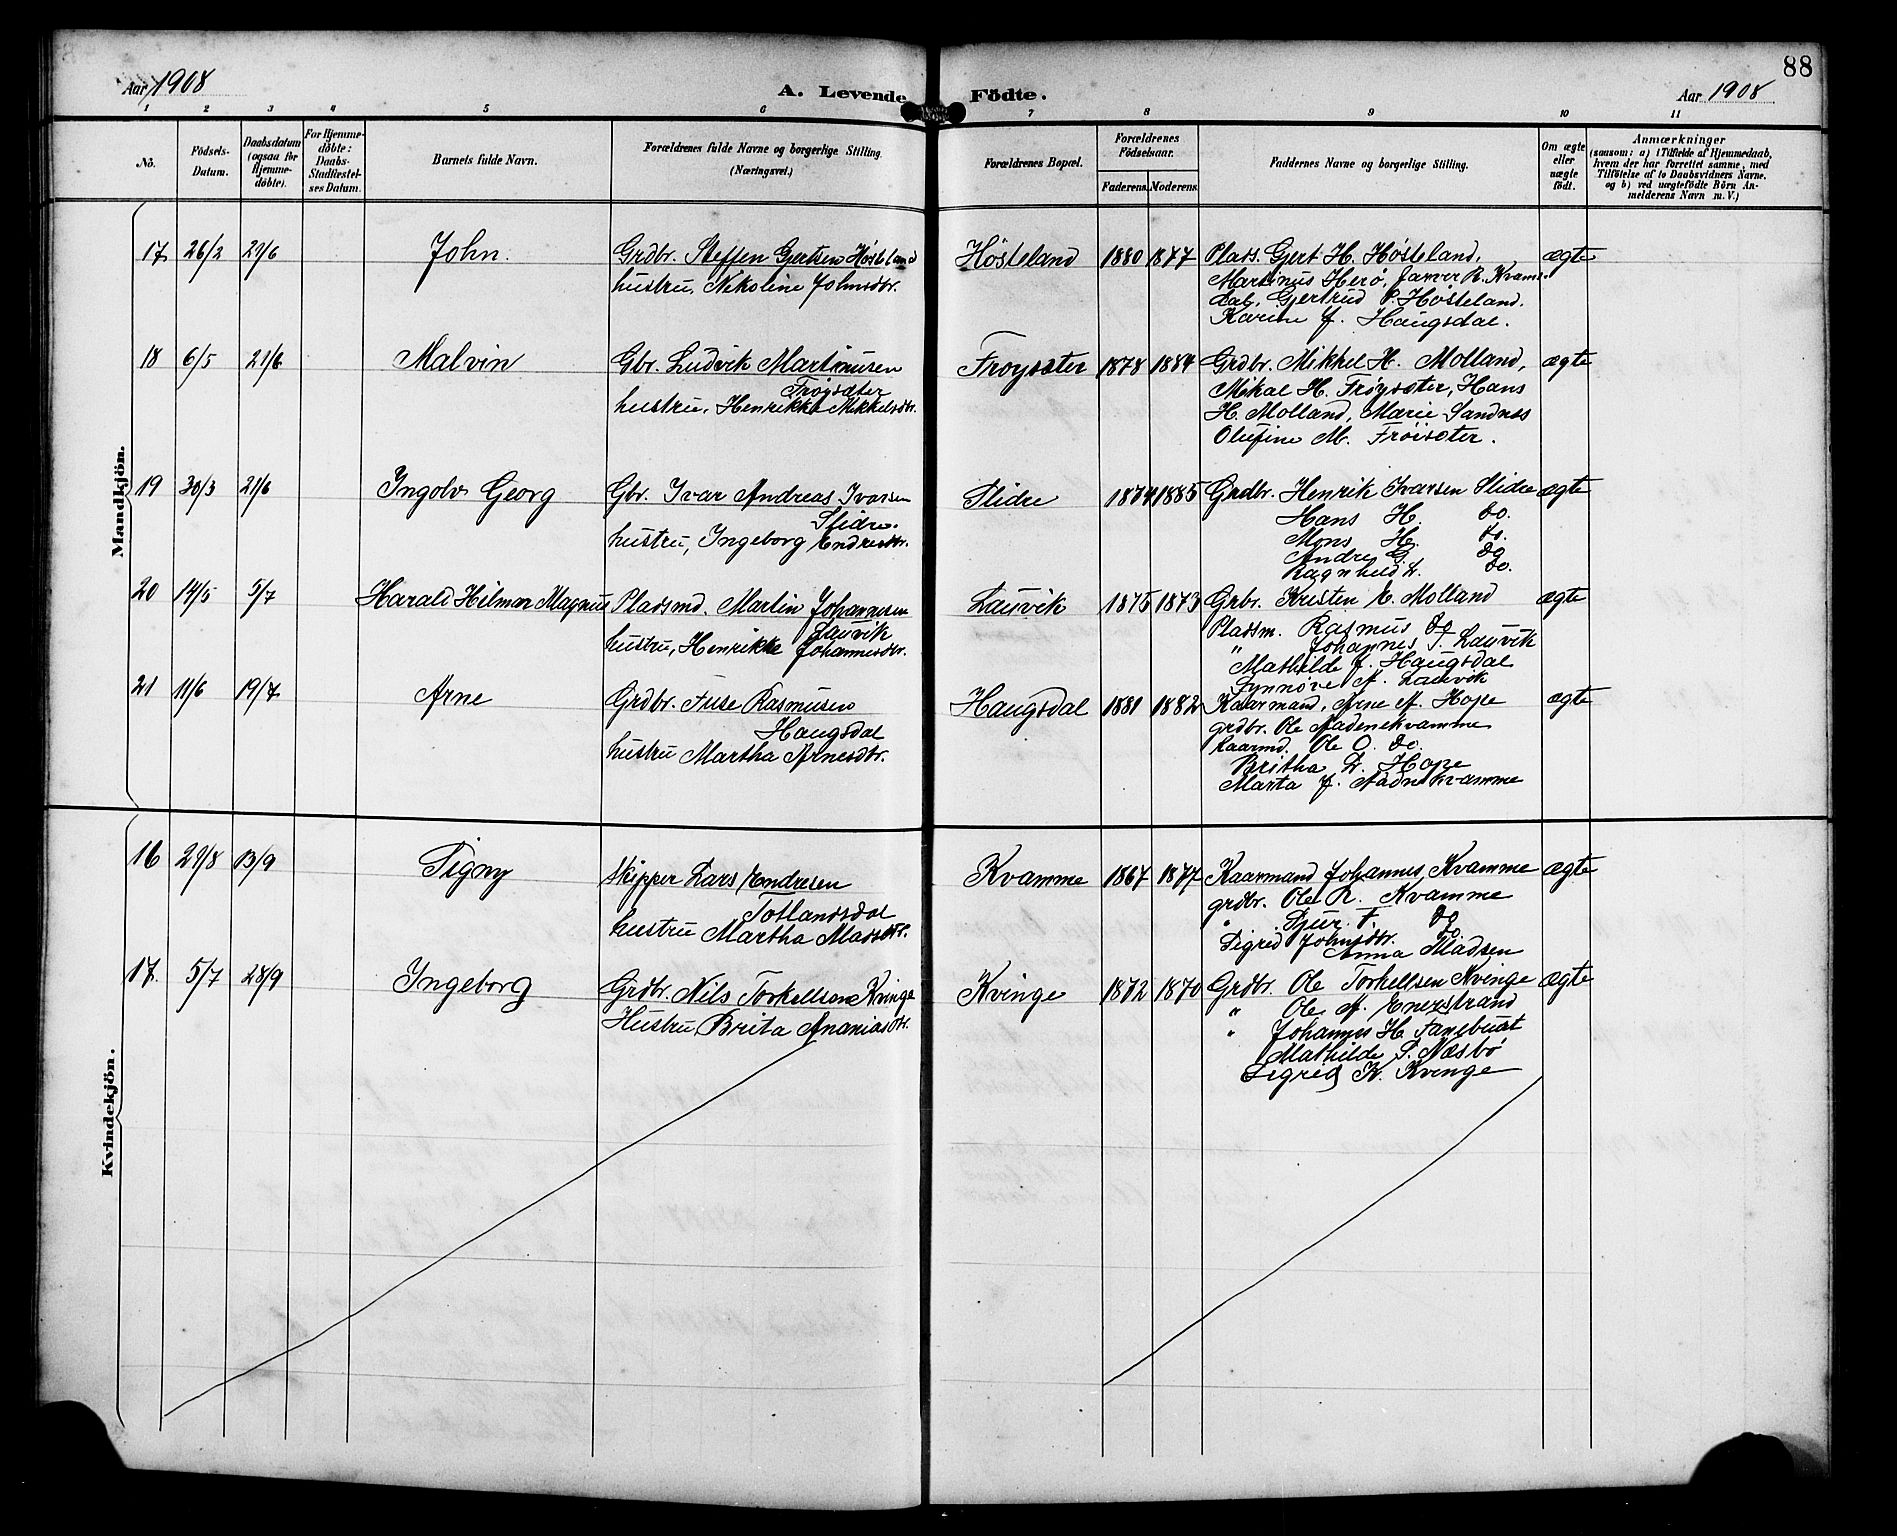 88
Aar 1908
A. Levende Födte.
Aar 1908
1 2 3 4 5 6 7 8 9 10 11
No.
Födsels-Datum.
Daabsdatum (ogsaa for Hjemme-döbte).
For Hjemme-döbte: Daabs-Stadfæstel-ses Datum.
Barnets fulde Navn.
Forældrenes fulde Navne og borgerlige Stilling. (Næringsvei.)
Forældrenes Bopæl.
Forældrenes Födselsaar.
Faderens. Moderens.
Faddernes Navne og borgerlige Stilling.
Om ægte eller uægte födt.
Anmærkninger
(saasom: a) i Tilfælde af Hjemmedaab,
hvem der har forrettet samme, med
Tilföielse af to Daabsvidners Navne.
og b) ved uægtefödte Börn An-
melderens Navn m. V.)
Mandkjön.
17 26/2 21/6 John. Grdbr. Steffen Gjertsen Høsteland Høsteland 1880 1877 Plads. Gjert H. Høsteland, ægte
hustru, Nikoline Johnsdtr. Martinus Herø, R. Kvamme
Gjertrud P. Høsteland.
Karine J. Haugsdal.
18 6/5 21/6 Malvin Gbr. Ludvik Martinusen Frøysæter 1878 1884 Grdbr. Mikkel H. Molland, ægte
Frøysæter Mikal H. Frøysæter, Hans
hustru, Henrikke Mikkelsdtr. H. Molland, Marie Sandnæs
Olufine M. Frøisæter.
19 30/3 21/6 Ingolv Georg Gbr. Ivar Andreas Ivarsen Slidre 1874 1885 Grdbr. Henrik Ivarsen Slidre ægte
Slidre. Hans H. do.
hustru, Ingeborg Endresdtr. Mons H. do.
Andre G. do
Ragnhild L. do.
20 14/5 5/7 Harald Hilmar Magnus Pladsmd. Martin Johannesen Lauvik 1875 1873 Grbr. Kristen E. Molland ægte
Lauvik Pladsm. Rasmus do
hustru, Henrikke Johannesdtr. " Johannes J. Lauvik
Mathilde J. Haugsdal
Synnøve A. Lauvik
21 11/6 19/7 Arne Grdbr. Fuse Rasmusen Haugsdal 1881 1882 Kaarmand, Arne A. Hope ægte
Haugsdal grdbr. Ole Aadnekvamme
hustru Martha Arnesdtr. kaarmd. Ole O. do.
Britha L. Hope
Marta J. Aadnekvamme
Kvindekjön.
16 29/8 13/9 Signy Skipper Lars Endresen Kvamme 1867 1877 Kaarmand Johannes Kvamme ægte
Totlandsdal grdbr. Ole R. Kvamme
hustru Martha Madsdtr. " Sjur F. do
Sigrid Johnsdtr. do
Anna Madsen
17. 5/7 28/9 Ingeborg Grdbr. Nils Torkellsen Kvinge Kvinge 1872 1870 Grdbr. Ole Torkellsen Kvinge ægte
Hustru, Brita Ananiasdtr. " Ole A. Enerstrand
" Johannes H. Fanebust
Mathilde S. Næsbø
Sigrid K. Kvinge